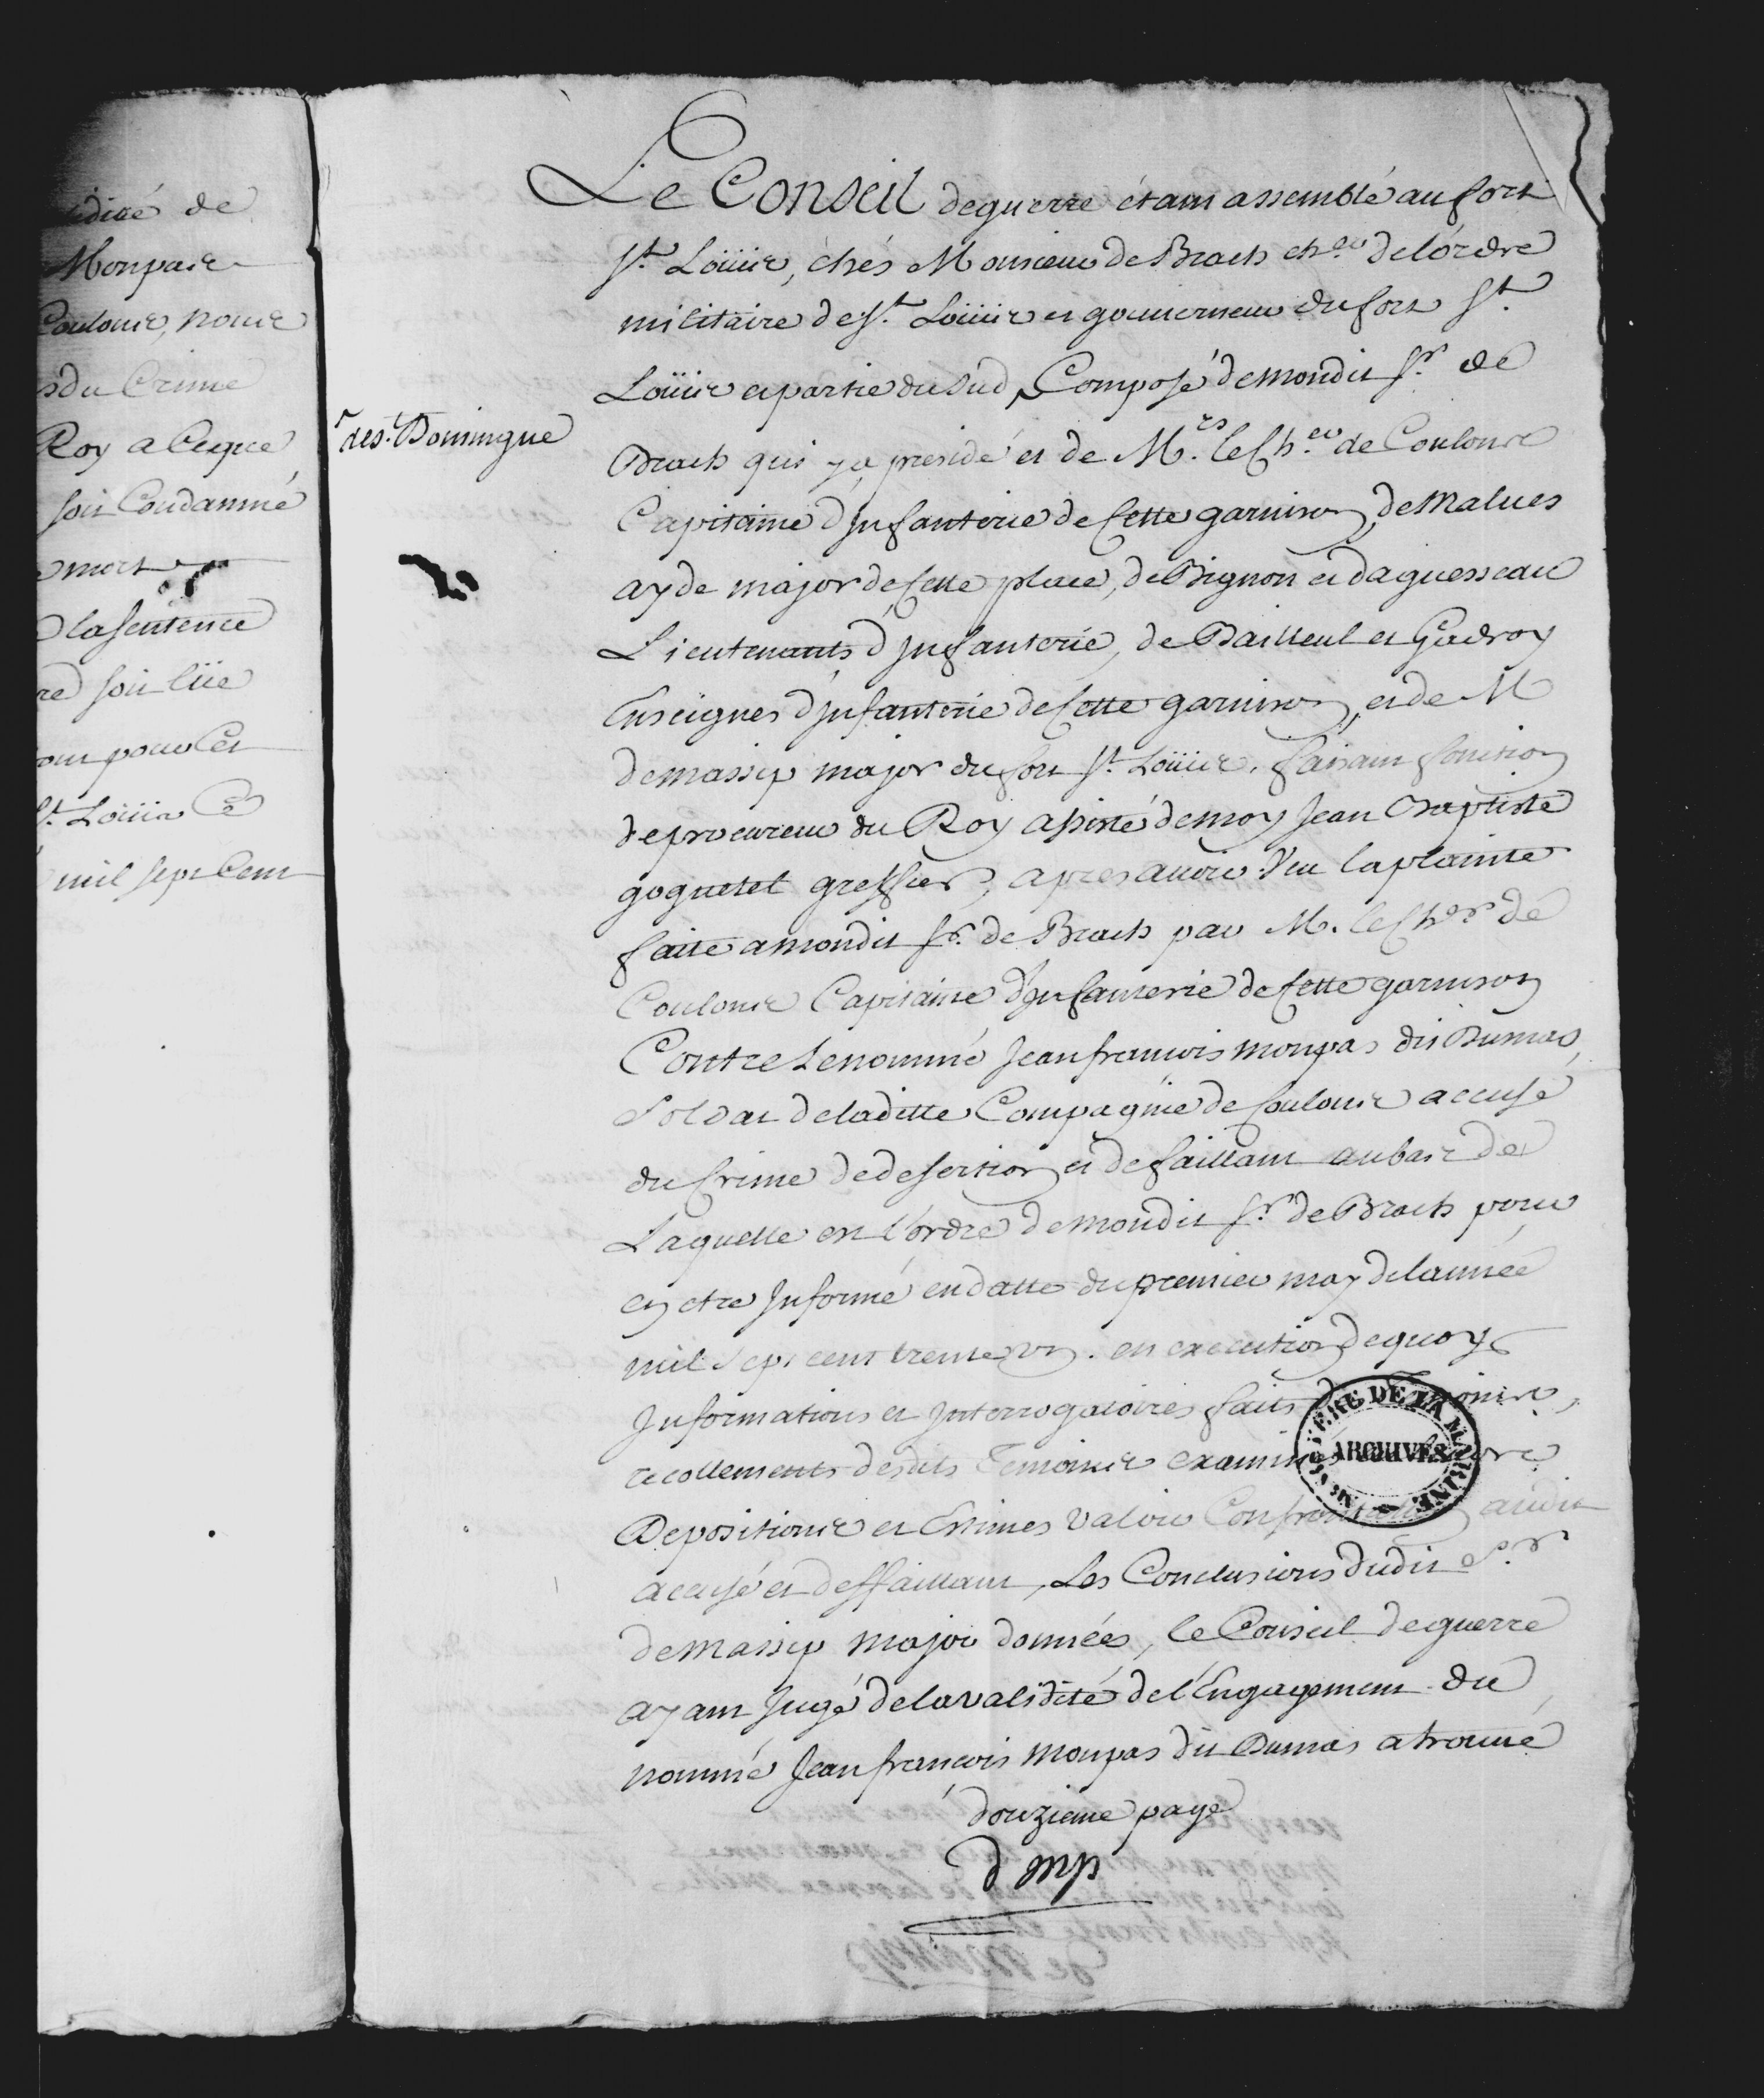 lidité de
Monpas
Coulons, nous
s du Crime
Roy a Ceque
soit Condamné
mort
la sentence
soit liie
pour Cet
St. Loüis Ce
mil sept Cent
Le Conseil de guerre étant assemblé au fort
St. Loüis, chés Monsieur de Brach cher. de lordre
militaire de St. Loüis et gouverneur du fort St.
Loüis et partie du Sud, Composé de mondit Sr. de
des. Domingue
Brach qui y a presidé et de Mrs. le Cher. de Coulons
Capitaine d'Infanterie de Cette garnison, de Malues
ayde major de Cette place, de Bignon et daguesseau
Lieutenants d'Infanterie, de Bailleul et Gadroy
Enseignes d'Infanterie de Cette garnison, et de M
de massip major du fort St. Loüis, faisant fonction
de procureur du Roy assisté de moy Jean Baptiste
goguetel greffier, apres avoir Veu la plainte
faitte a mondit Sr. de Brach par M. le Cher. de
Coulons Capitaine d'Infanterie de Cette garnison
Contre Le nommé Jean francois monpas dit Dumas,
Soldat de laditte Compagnie de Coulons accusé
du Crime de desertion et defaillant au bas de
Laquelle est l'ordre de mondit Sr. de Brach pour
en etre Informé en datte du premier may de lannée
mil sept cent trente un. en execution de quoy
Informations et Interrogatoires faits
recollements desdits Temoins examinés
Depositions et Estimés valoir Confrontation audit
accusé et deffaillant, Les Conclusions dudit Sr.
de Massip Major données, le Conseil de guerre
ayant Jugé de la validité de l'Engagement du
nommé Jean francois Monpas dit Dumas a trouvé
douzieme page
d mp
MINISTERE DE LA MARINE
ARCHIVES